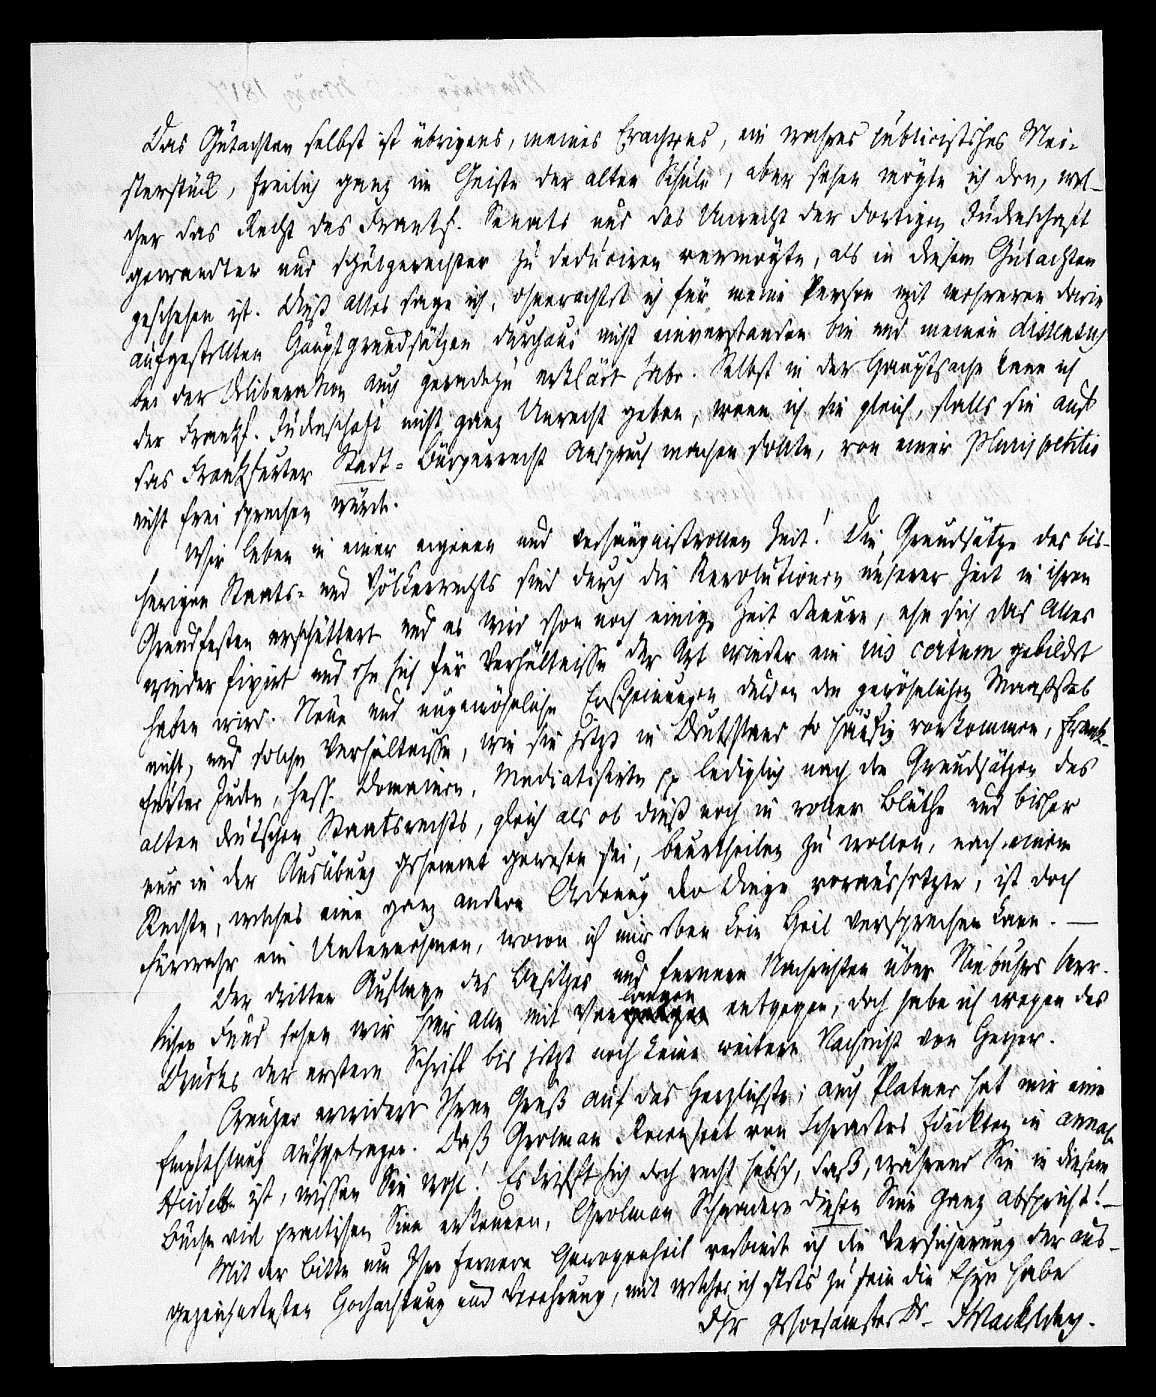 Das Gutachten selbst ist übrigens, meines Erachtens, ein wahres publicistisches Mei-
sterstück, freilich ganz im Geiste der alten Schule, aber sehen mögte ich den, wel-
cher das Recht des Frankf. Senats und das Unrecht der dortigen Judenschaft
gewandter und schulgerechter zu deduciren vermögte, als in diesem Gutachten
geschehen ist. Dieß alles sage ich, ohnerachtet ich für meine Person mit mehreren darin
aufgestellten Hauptgrundsätzen durchaus nicht einverstanden bin und meinen dissensus
bei der Deliberation auch geradezu erklärt habe. Selbst in der Hauptsache kann ich
der Frankf. Judenschaft nicht ganz Unrecht geben, wenn ich sie gleich, falls sie auf
das Frankfurter Stadt-Bürgerrecht Anspruch machen sollte, von einer pluris petitio
nicht frei sprechen würde.
Wir leben in einer eigenen und verhängnißvollen Zeit! Die Grundsätze des bis-
herigen Staats- und Völkerrechts sind durch die Revolutionen unserer Zeit in ihren
Grundfesten erschüttert und es wird schon noch einige Zeit dauern, ehe sich das Alles
wieder fixirt und ehe sich für Verhältnisse der Art wieder ein ius certum gebildet
haben wird. Neue und ungewöhnliche Erscheinungen dulden den gewöhnlichen Maaßstab
nicht, und solche Verhältnisse, wie sie jetzt in Deutschland so häufig vorkommen, Frank-
furter Juden, Hess. Domainen, Mediatisirte pp lediglich nach den Grundsätzen des
alten deutschen Staatsrechts, gleich als ob dieß noch in voller Blüthe und bisher
nur in der Ausübung gehemmt gewesen sei, beurtheilen zu wollen, nach einem
Rechte, welches eine ganz andere Ordnung der Dinge voraussetzte, ist doch
fürwahr ein Unternehmen, wovon ich mir eben kein Heil versprechen kann. —
Der dritten Auflage des Besitzes und fernern Nachrichten über Niebuhrs herr-
lichen Fund sehen wir hier alle mit Verlangen entgegen; doch habe ich wegen des
Drucks der erstern Schrift bis jetzt noch keine weitere Nachricht von Heyer.
Creuzer erwidert Ihren Gruß auf das Herzlichste; auch Platner hat mir eine
Empfehlung aufgetragen. Daß Grolman Recensent von Schraders Edickten in annal.
Heidelb. ist, wissen Sie wohl! Es trifft sich doch recht hübsch, daß, während Sie in diesem
Buche viel practischen Sinn erkennen, Grolman Schradern diesen Sinn ganz abspricht! —
Mit der Bitte um Ihre fernere Gewogenheit verbinde ich die Versicherung der aus-
gezeichnetsten Hochachtung und Verehrung, mit welcher ich stets zu sein die Ehre habe
Ihr gehorsamster Dr. FMackeldey.